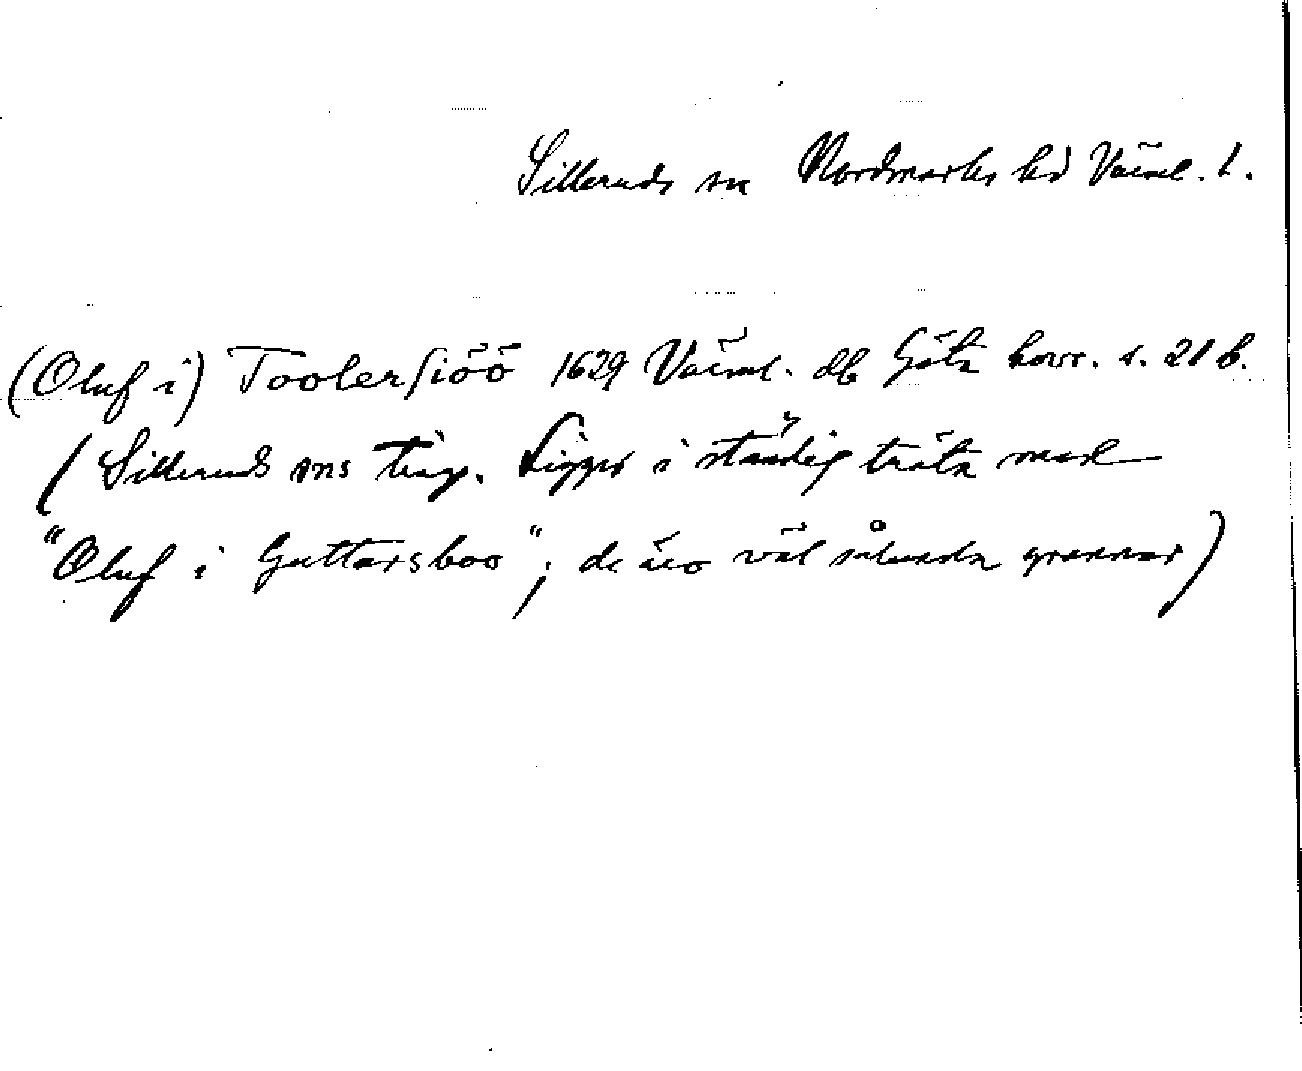 Silleruds sn Nordmarks hd Värml. l.
(Oluf i) Toolersiöö 1629 Värml. db Göta hovr. s. 21 b.
(Sillerud sns ting. Ligger i ständig träta med
"Oluf i Guttarsboo"; de äro väl sålunda grannar)